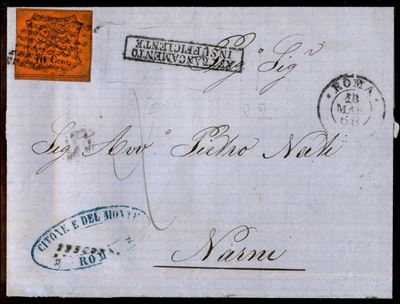 10 Cent
AFFRANCAMENTO
INSUFFICIENTE
Sig.
ROMA
18
MAR
68
Sig. Avv. Pietro
CIVONE E DEL MONTE
ROMA
Narni